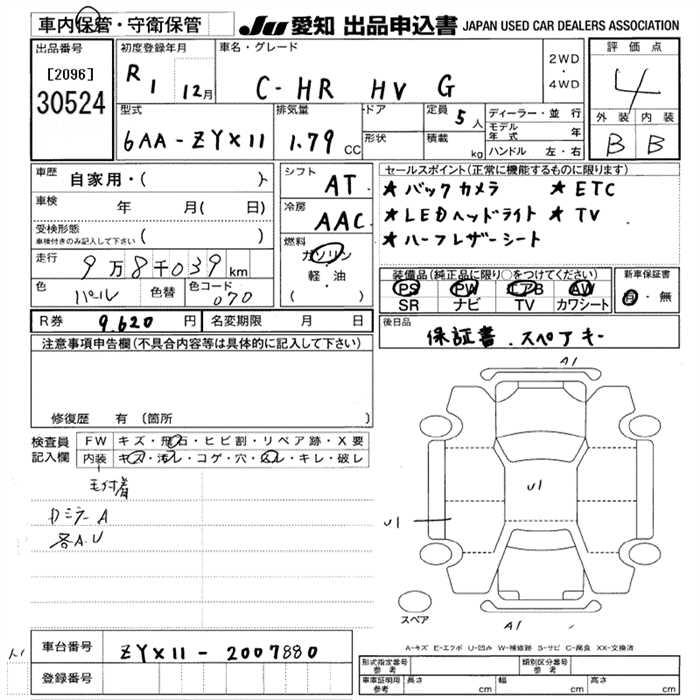 車内保管・守衛保管
JU 愛知 出品申込書 JAPAN USED CAR DEALERS ASSOCIATION
出品番号
[2096]
30524
初度登録年月
R1 12月
車名・グレード
C-HR HV G
2WD
・
4WD
評価点
4
外装 内装
B B
型式
6AA-ZYX11
排気量
1.79 CC
ドア
形状
定員 5 人
積載 kg
ディーラー・並行
モデル年式 年
ハンドル 左・右
車歴 自家用・( )
車検 年 月( 日)
受検形態
車検付きのみ記入して下さい ( )
走行 9万8千039km
色 パール 色替 色コード 070
シフト AT
冷房 AAC
燃料 ガソリン
・
軽・油
( )
セールスポイント(正常に機能するものに限ります)
★バックカメラ ★ETC
★LEDヘッドライト ★TV
★ハーフレザーシート
装備品(純正品に限り○をつけてください)
PS PW エアB AW
SR ナビ TV カワシート
新車保証書
有・無
R券 9,620 円 名変期限 月 日
後日品
保証書.スペアキー
注意事項申告欄(不具合内容等は具体的に記入して下さい)
修復歴 有(箇所 )
検査員記入欄
FW キズ・飛石・ヒビ割・リペア跡・X要
内装 キズ・汚レ・コゲ・穴・ハレ・キレ・破レ
毛付着
カミラーA
各A.U
A1
U1
U1
A1
スペア
A-キズ E-エクボ U-凹み W-補修跡 S-サビ C-腐食 XX-交換済
車台番号 ZYX11-2007880
登録番号
形式指定番号 参考
類別区分番号 参考
車庫証明用 参考 長さ cm 幅 cm 高さ cm